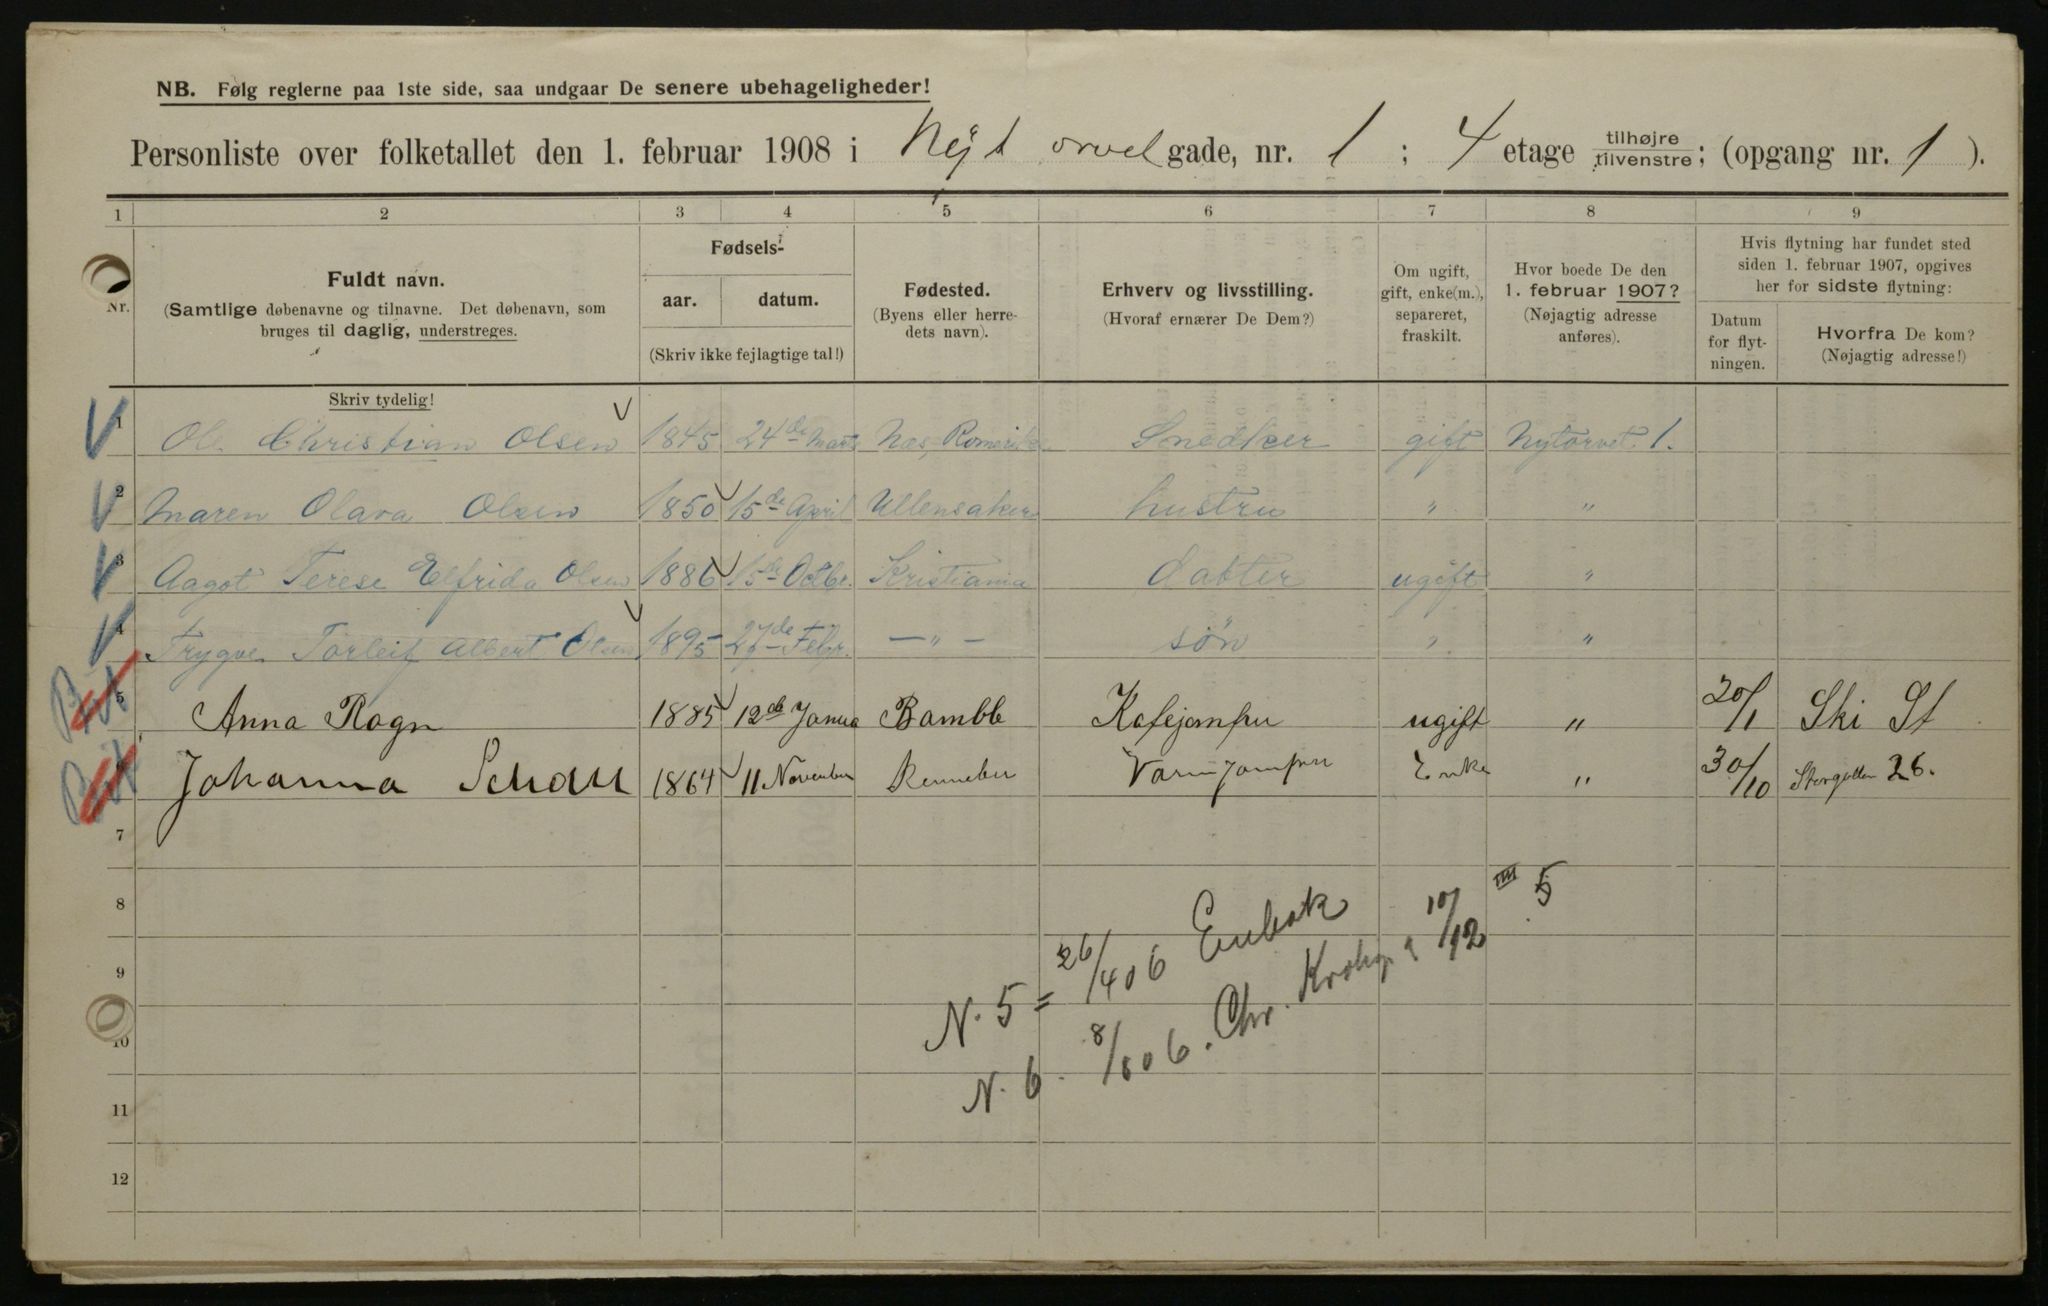 NB. Følg reglerne paa 1ste side, saa undgaar De senere ubehageligheder!
Personliste over folketallet den 1. februar 1908 i Nyt orvet gade, nr. 1 ; 4 etage tilhøjre tilvenstre; (opgang nr. 1 ).
1 2 3 4 5 6 7 8 9
Nr.
Fuldt navn.
(Samtlige døbenavne og tilnavne. Det døbenavn, som
bruges til daglig, understreges.
Fødsels-
aar. datum.
(Skriv ikke fejlagtige tal!)
Fødested.
(Byens eller herre-
dets navn).
Erhverv og livsstilling.
(Hvoraf ernærer De Dem?)
Om ugift,
gift, enke(m.),
separeret,
fraskilt.
Hvor boede De den
1. februar 1907?
(Nøjagtig adresse
anføres).
Hvis flytning har fundet sted
siden 1. februar 1907, opgives
her for sidste flytning:
Datum
for flyt-
ningen.
Hvorfra De kom?
(Nøjagtig adresse!)
Skriv tydelig!
1 Ole Christian Olsen 1845 24de Marts Næs, Romerike Snedker gift Nytorvet 1.
2 Maren Olava Olsen 1850 15de April Ullensaker hustru " "
3 Aagot Terese Elfrida Olsen 1886 15de Octbr. Kristiania datter ugift "
4 Trygve Torleif Albert Olsen 1895 27de Febr. — " — søn " "
5 Anna Rogn 1885 12de Janua Bamble Kafejomfru ugift " 20/1 Ski St
6 Johanna Schau 1864 11 November Rennebu Varmjomfru Enke " 30/10 Storgatten 26.
7
8
9
10
11
12
N. 5 = 26/4 06 Enebak
N. 6. 8/8 06. Chr. Krohgs 10/12 III 5